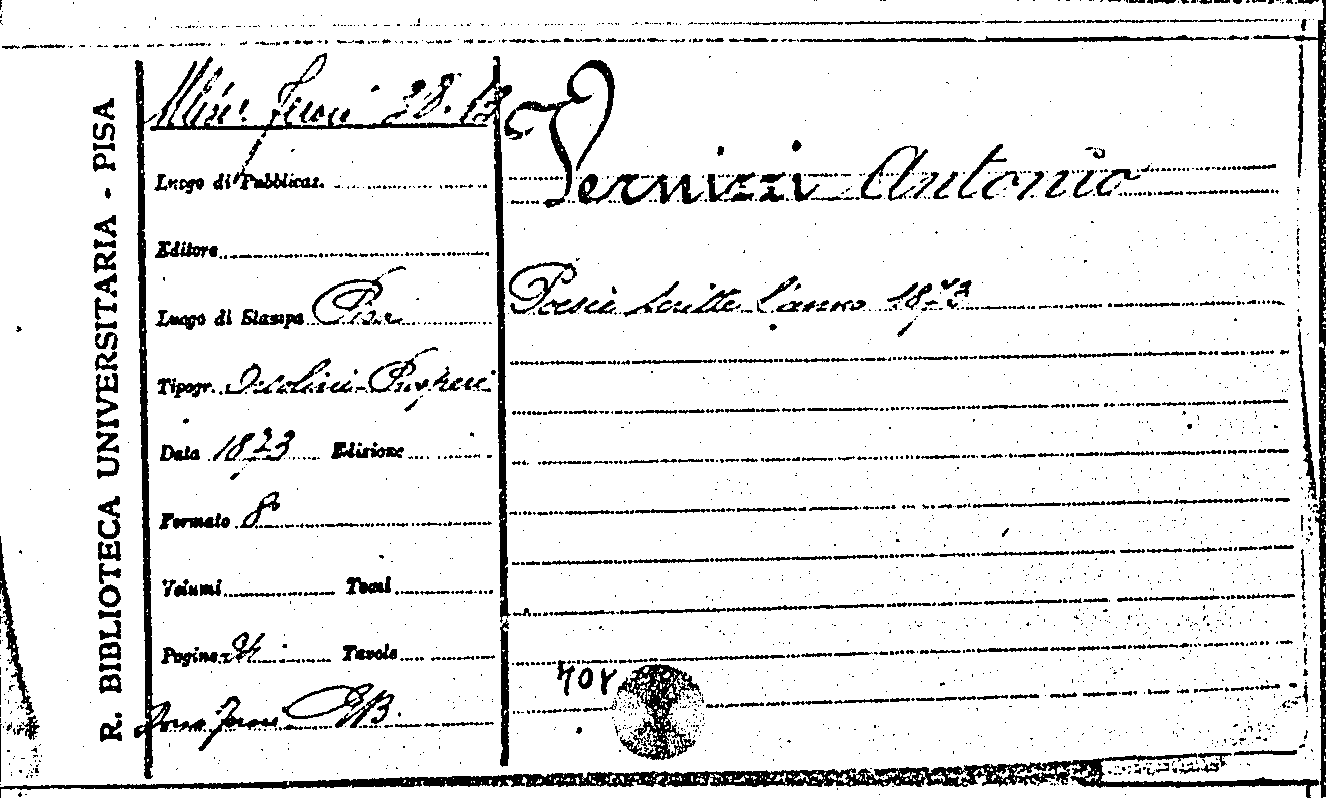 R. BIBLIOTECA UNIVERSITARIA - PISA
Misc. Feroci 28. 13
Luogo di Pubblicaz.
Editore
Luogo di Stampa Pisa
Tipogr. Orsolini-Prosperi
Data 1873 Edizione
Formato 8°
Volumi Tomi
Pagine 24 Tavole
Dono Feroci GB.
Vernizzi Antonio
Poesie scritte l'anno 1873